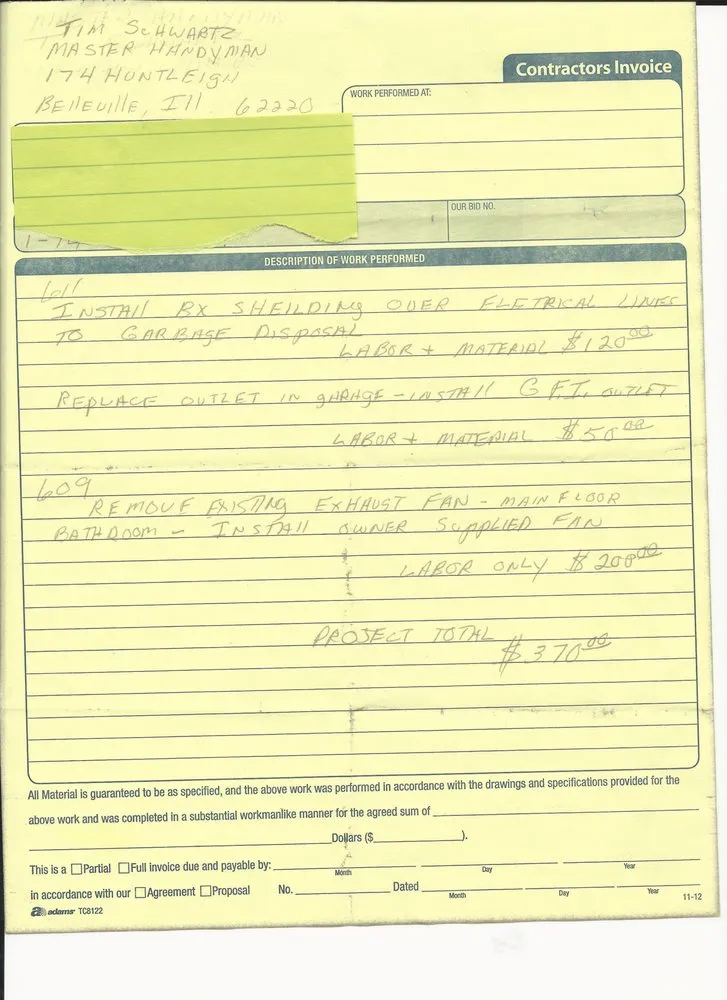 TIM SCHWARTZ
MASTER HANDYMAN
174 HUNTLEIGH
BELLEVILLE, Ill 62220
Contractors Invoice
WORK PERFORMED AT:
OUR BID NO.
DESCRIPTION OF WORK PERFORMED
611
INSTALL BX SHEILDING OVER ELETRICAL LINES
TO GARBAGE DISPOSAL
LABOR + MATERIAL $120.00
REPLACE OUTLET IN gARAGE - INSTALL G.F.I. OUTLET
LABOR + MATERIAL $50.00
609
REMOVE EXISTING EXHAUST FAN - MAIN FLOOR
BATHDOOM - INSTALL OWNER SUPPLIED FAN
LABOR ONLY $200.00
PROJECT TOTAL
$370.00
All Material is guaranteed to be as specified, and the above work was performed in accordance with the drawings and specifications provided for the
above work and was completed in a substantial workmanlike manner for the agreed sum of
Dollars ($ ).
This is a ☐ Partial ☐ Full invoice due and payable by:
Month Day Year
in accordance with our ☐ Agreement ☐ Proposal No. Dated
Month Day Year
11-12
adams TC8122